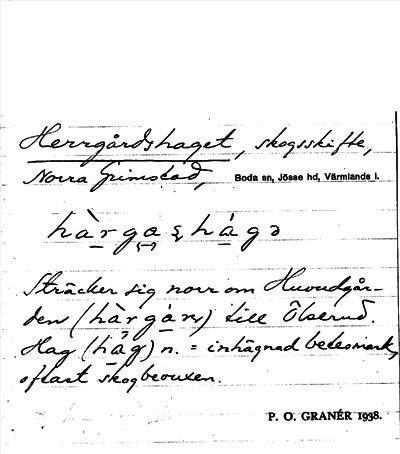 Herrgårdshaget, skogsskifte,
Norra Grimstad, Boda sn, Jösse hd, Värmlands l.
hàrgaʂhágə
Sträcker sig norr om Huvudgår-
den (hàrgáɳ) till Ölserud.
Hag (hág) n. = inhägnad betesmark,
oftast skogbevuxen.
P. O. GRANÉR 1938.